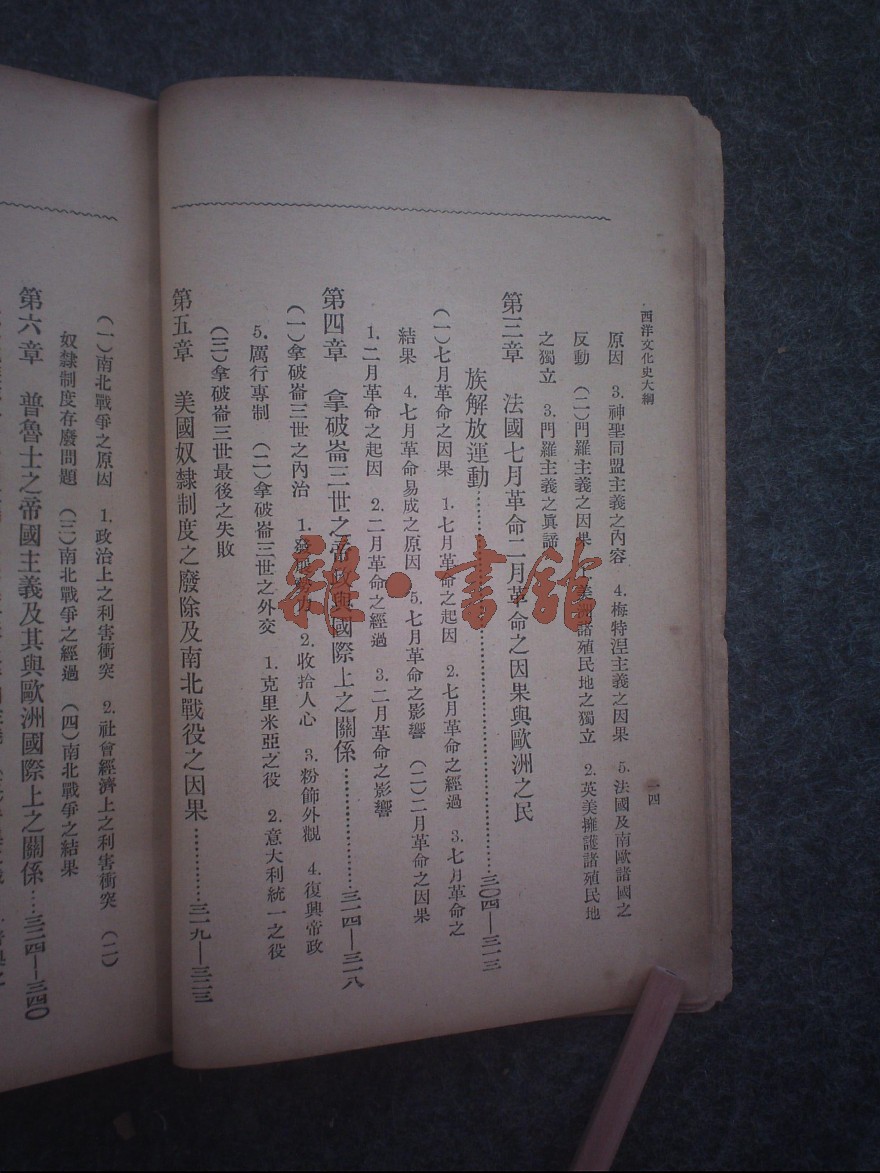 西洋文化史大綱
一四
原因 3. 神聖同盟主義之內容 4. 梅特涅主義之因果 5. 法國及南歐諸國之
反動 (二)門羅主義之因果 1. 美洲諸殖民地之獨立 2. 英美擁護諸殖民地
之獨立 3. 門羅主義之眞諦
第三章 法國七月革命二月革命之因果與歐洲之民
族解放運動……………………三〇四—三一三
(一)七月革命之因果 1. 七月革命之起因 2. 七月革命之經過 3. 七月革命之
結果 4. 七月革命易成之原因 5. 七月革命之影響 (二)二月革命之因果
1. 二月革命之起因 2. 二月革命之經過 3. 二月革命之影響
第四章 拿破崙三世之帝政與國際上之關係……………三一四—三一八
(一)拿破崙三世之內治 1. 發展勢力 2. 收拾人心 3. 粉飾外觀 4. 復興帝政
5. 厲行專制 (二)拿破崙三世之外交 1. 克里米亞之役 2. 意大利統一之役
(三)拿破崙三世最後之失敗
第五章 美國奴隸制度之廢除及南北戰役之因果………三一九—三二三
(一)南北戰爭之原因 1. 政治上之利害衝突 2. 社會經濟上之利害衝突 (二)
奴隸制度存廢問題 (三)南北戰爭之經過 (四)南北戰爭之結果
第六章 普魯士之帝國主義及其與歐洲國際上之關係…三二四—三四〇
雜·書館